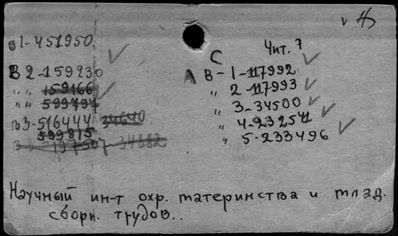 в 1-451950
В 2-159230
" " 159166
" " 599797
в 3-516444 34640
599815
Чит. 7
С
А В-1-117992
" 2-117993
" 3-34500
" 4-232541
" 5-233496
Научный ин-т охр. материнства и млад.
сборн. трудов..